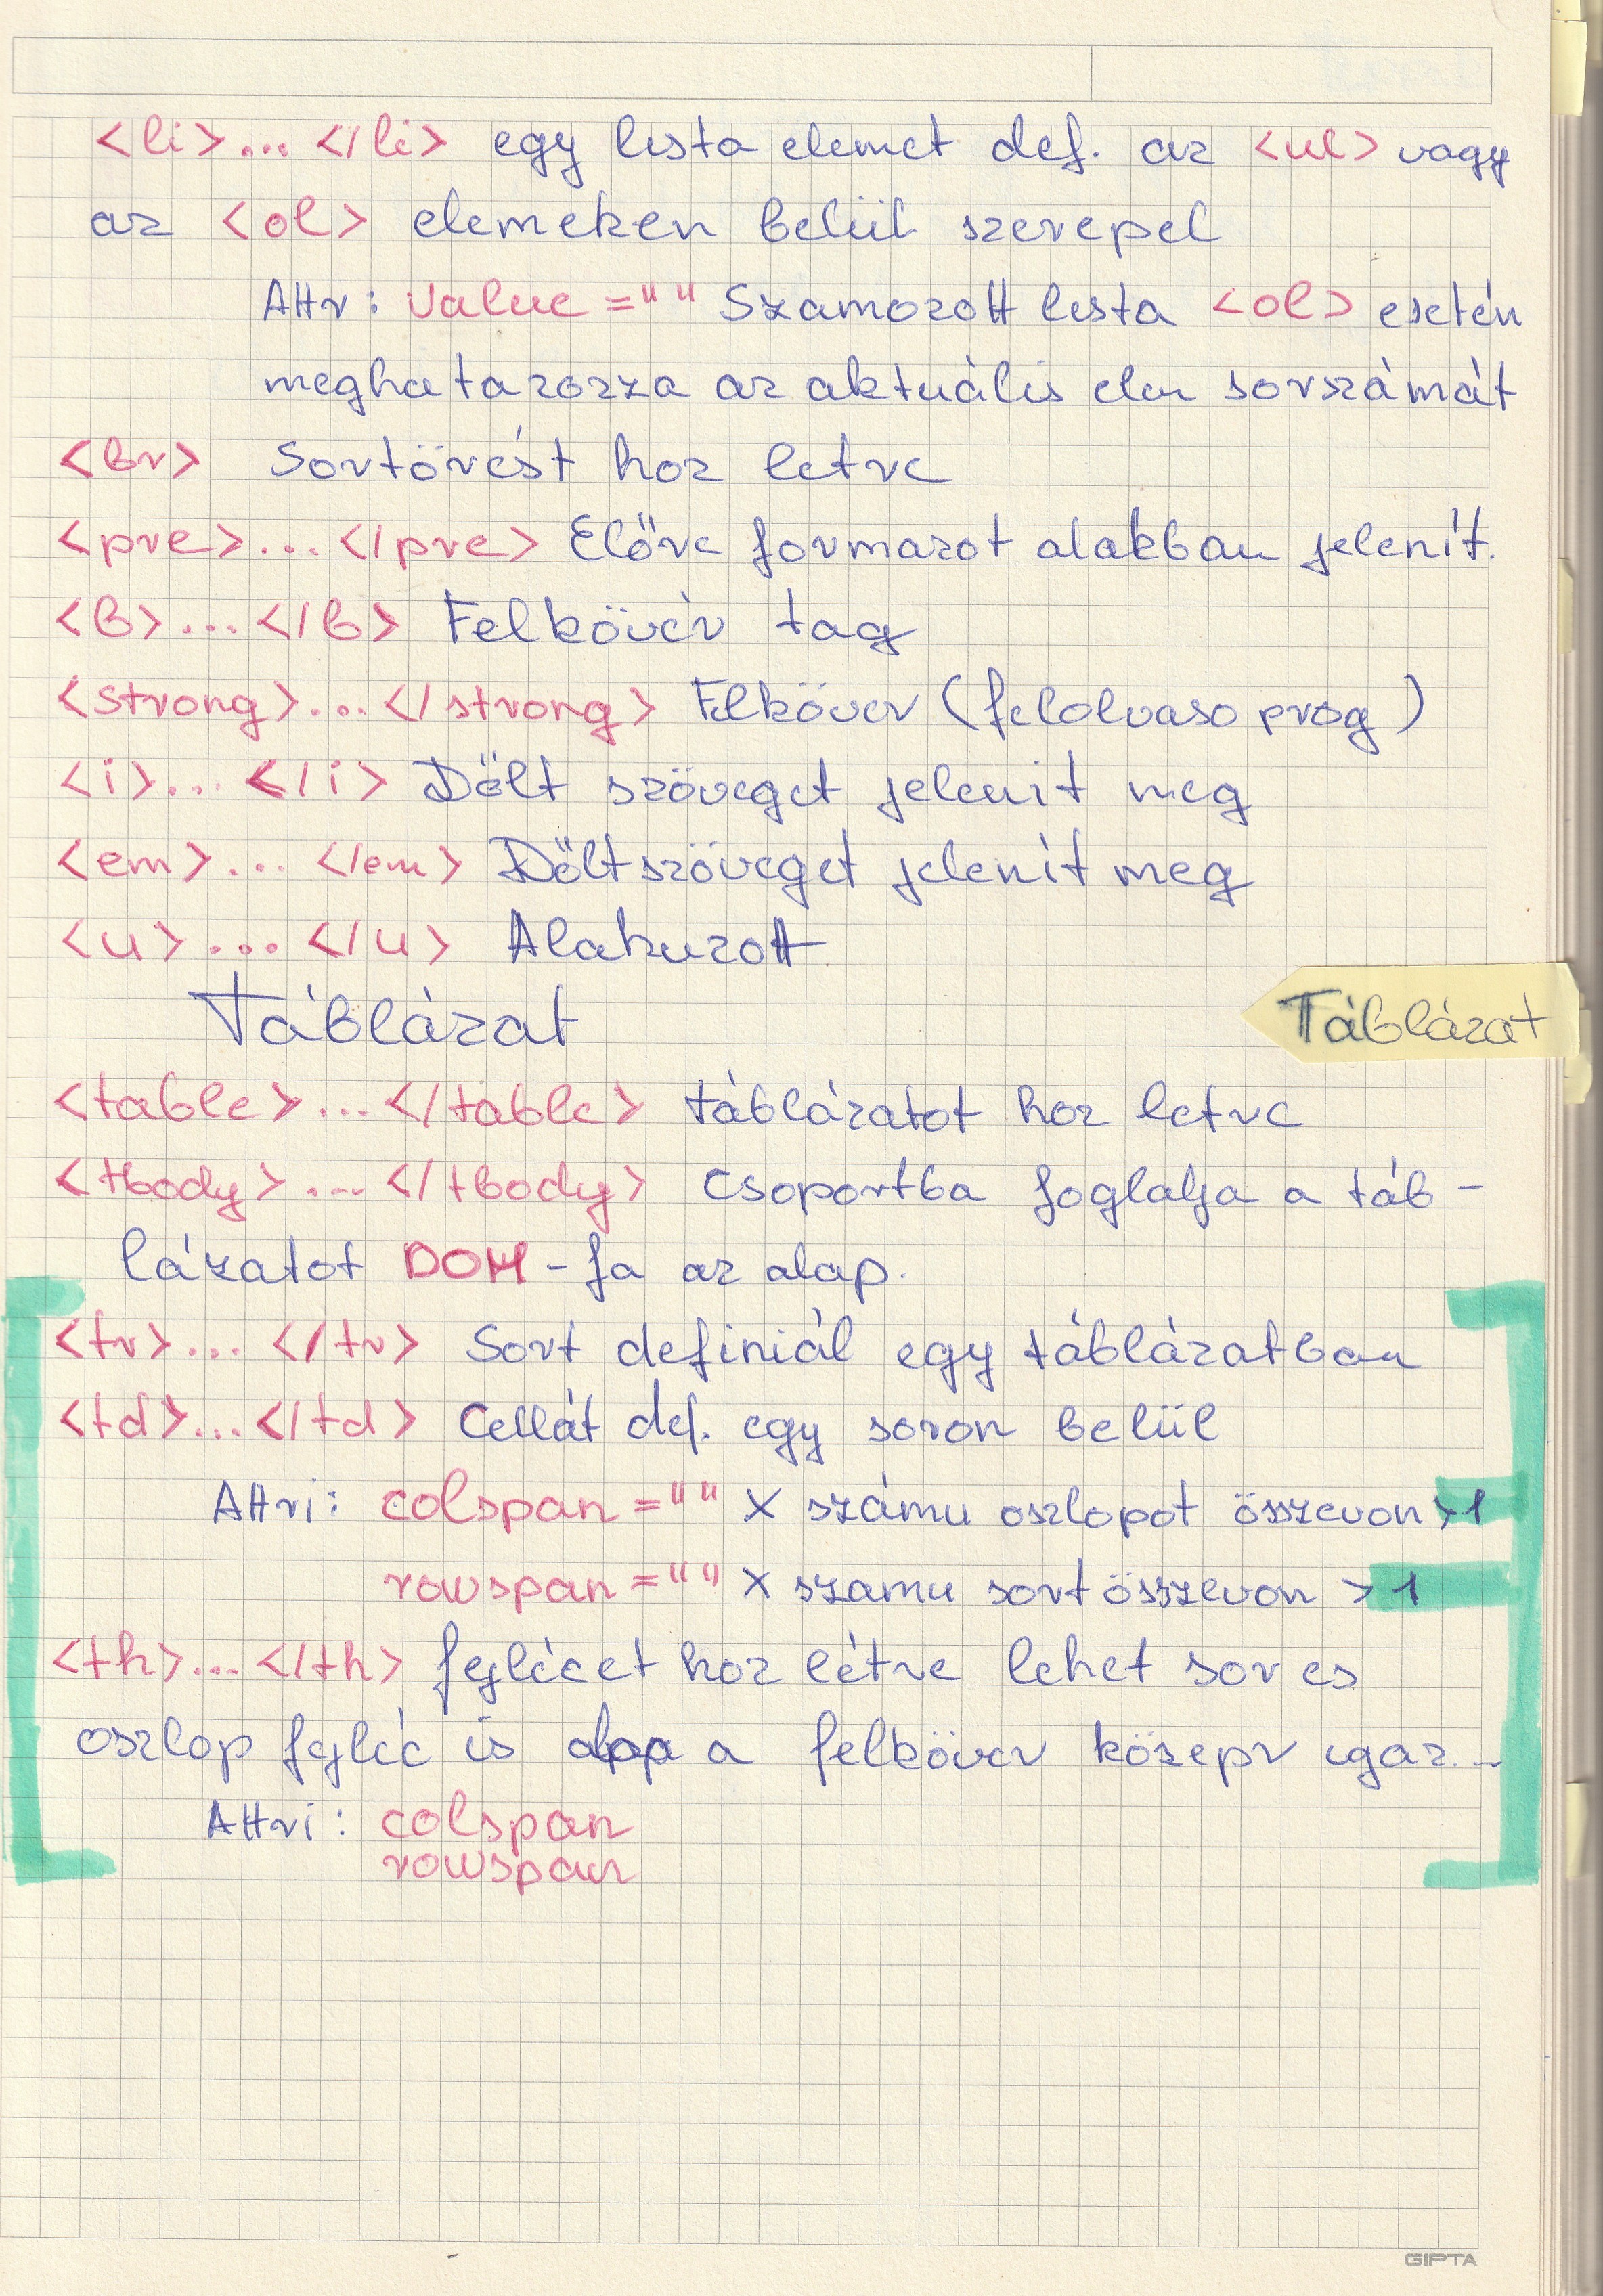 <li>... </li> egy lista elemet def. az <ul> vagy
az <ol> elemeken belül szerepel
Attr: value ="" Szamozott lista <ol> esetén
meghatarozza az aktuális elem sorszámát
<br> Sortörést hoz letre
<pre>... </pre> Előre formazot alakban jelenít.
<b>... </b> Felkövér tag
<strong>... </strong> Felkövér (felolvaso prog)
<i>... </i> Dőlt szöveget jelenit meg
<em>... </em> Dőlt szöveget jelenít meg
<u>... </u> Alahuzott
Táblázat
Táblázat
<table>... </table> táblázatot hoz letre
<tbody>... </tbody> Csoportba foglalja a táb-
lázatot DOM-fa az alap.
<tr>... </tr> Sort definiál egy táblázatban
<td>... </td> Cellát def. egy soron belül
Attri: colspan ="" X számu oszlopot összevon >1
rowspan ="" X szamu sort összevon > 1
<th>... </th> fejlécet hoz létre lehet sor es
oszlop fejléc is alap a felkövér közepr igaz...
Attri: colspan
rowspan
GIPTA